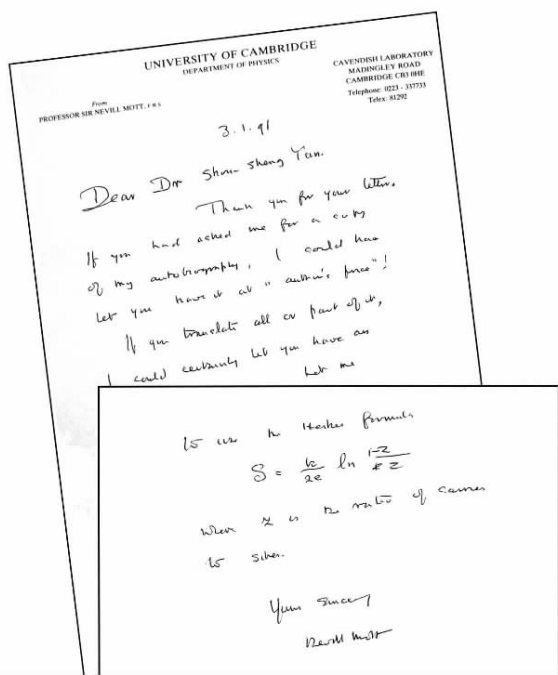 UNIVERSITY OF CAMBRIDGE
DEPARTMENT OF PHYSICS
From
PROFESSOR SIR NEVILL MOTT, F.R.S.
CAVENDISH LABORATORY
MADINGLEY ROAD
CAMBRIDGE CB3 0HE
Telephone: 0223 - 337733
Telex: 81292
3.1.91
Dear Dr Shou Sheng Yan.
Thank you for your letter.
If you had asked me for a copy
of my autobiography, I could have
let you have it at "author's price"!
If you translate all or part of it,
I could certainly let you have an
Let me
to use the Heikes formula
S = k/2e ln 1-z/z
where z is the ratio of carriers
to sites.
Yours sincerely
Nevill Mott